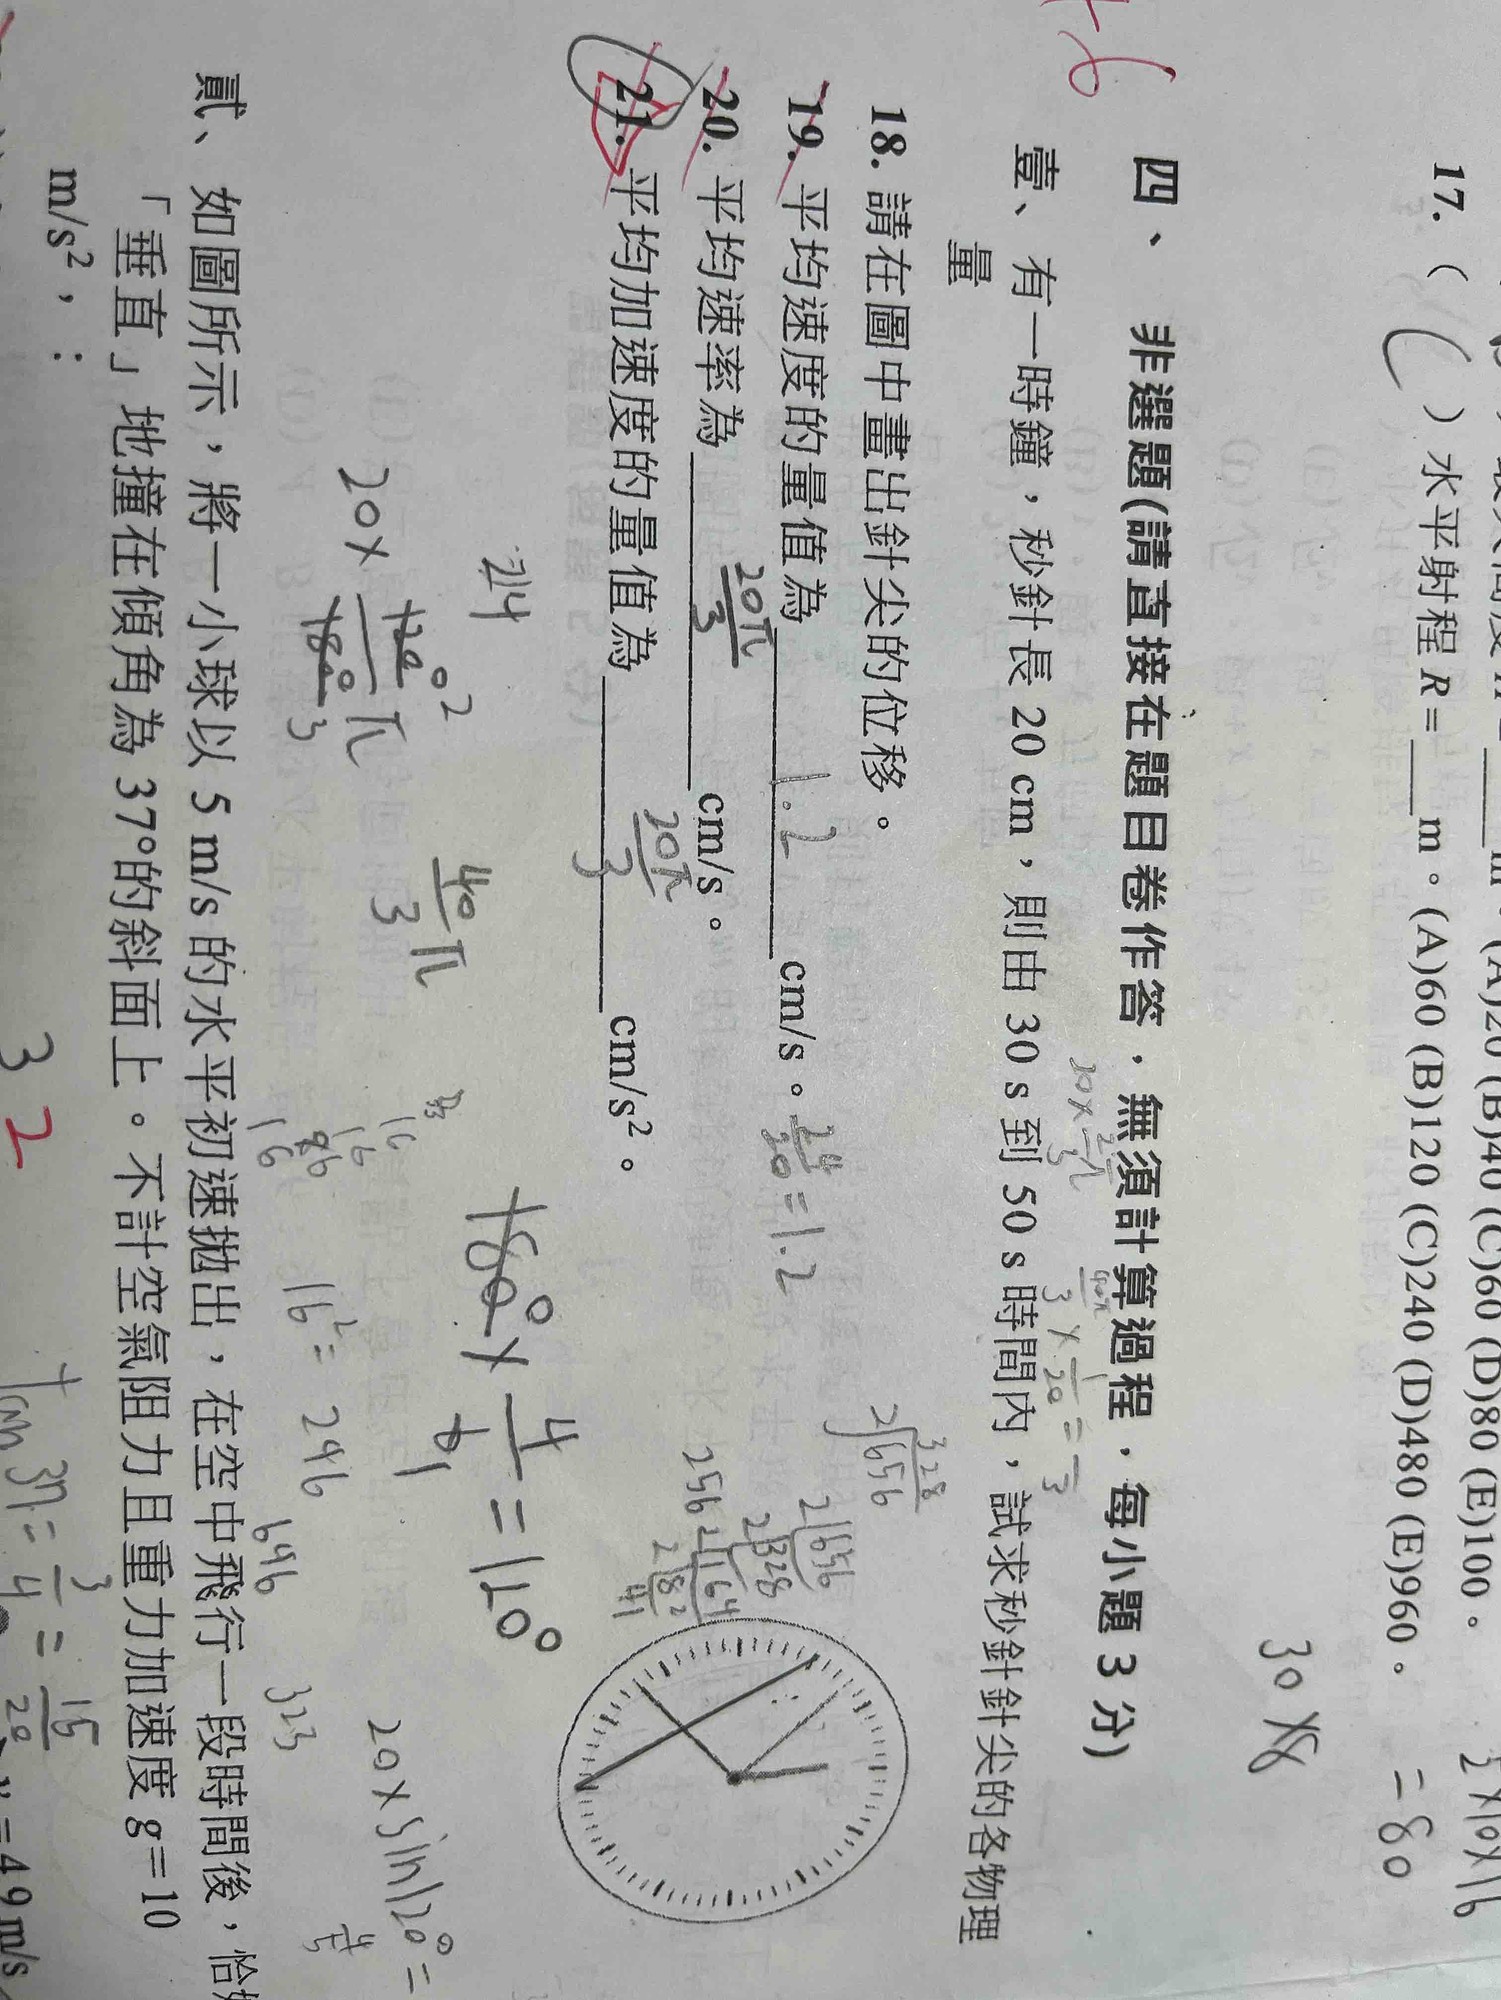 (A)20 (B)40 (C)60 (D)80 (E)100。
17. ( ( ) 水平射程 R=____m。(A)60 (B)120 (C)240 (D)480 (E)960。
= 80
30 ×
-6
四、 非選題(請直接在題目卷作答,無須計算過程,每小題 3 分)
壹、有一時鐘,秒針長 20 cm,則由 30 s 到 50 s 時間內,試求秒針針尖的各物理
量
18. 請在圖中畫出針尖的位移。
19. 平均速度的量值為 1.2 cm/s。 24/20 = 1.2
20. 平均速率為 20π/3 cm/s。
21. 平均加速度的量值為 20π/3 cm/s²。
2 656
328
2 656
2 328
2 164
2 82
41
256
180° × 4/6 = 120°
20 × 120°/180° π
2
3
40/3 π
16
16
16² = 296
696
323
20 × sin120° =
貳、如圖所示,將一小球以 5 m/s 的水平初速拋出,在空中飛行一段時間後,恰
「垂直」地撞在傾角為 37°的斜面上。不計空氣阻力且重力加速度 g=10
m/s²,:
3 2
tan 37 = 3/4 = 15/20